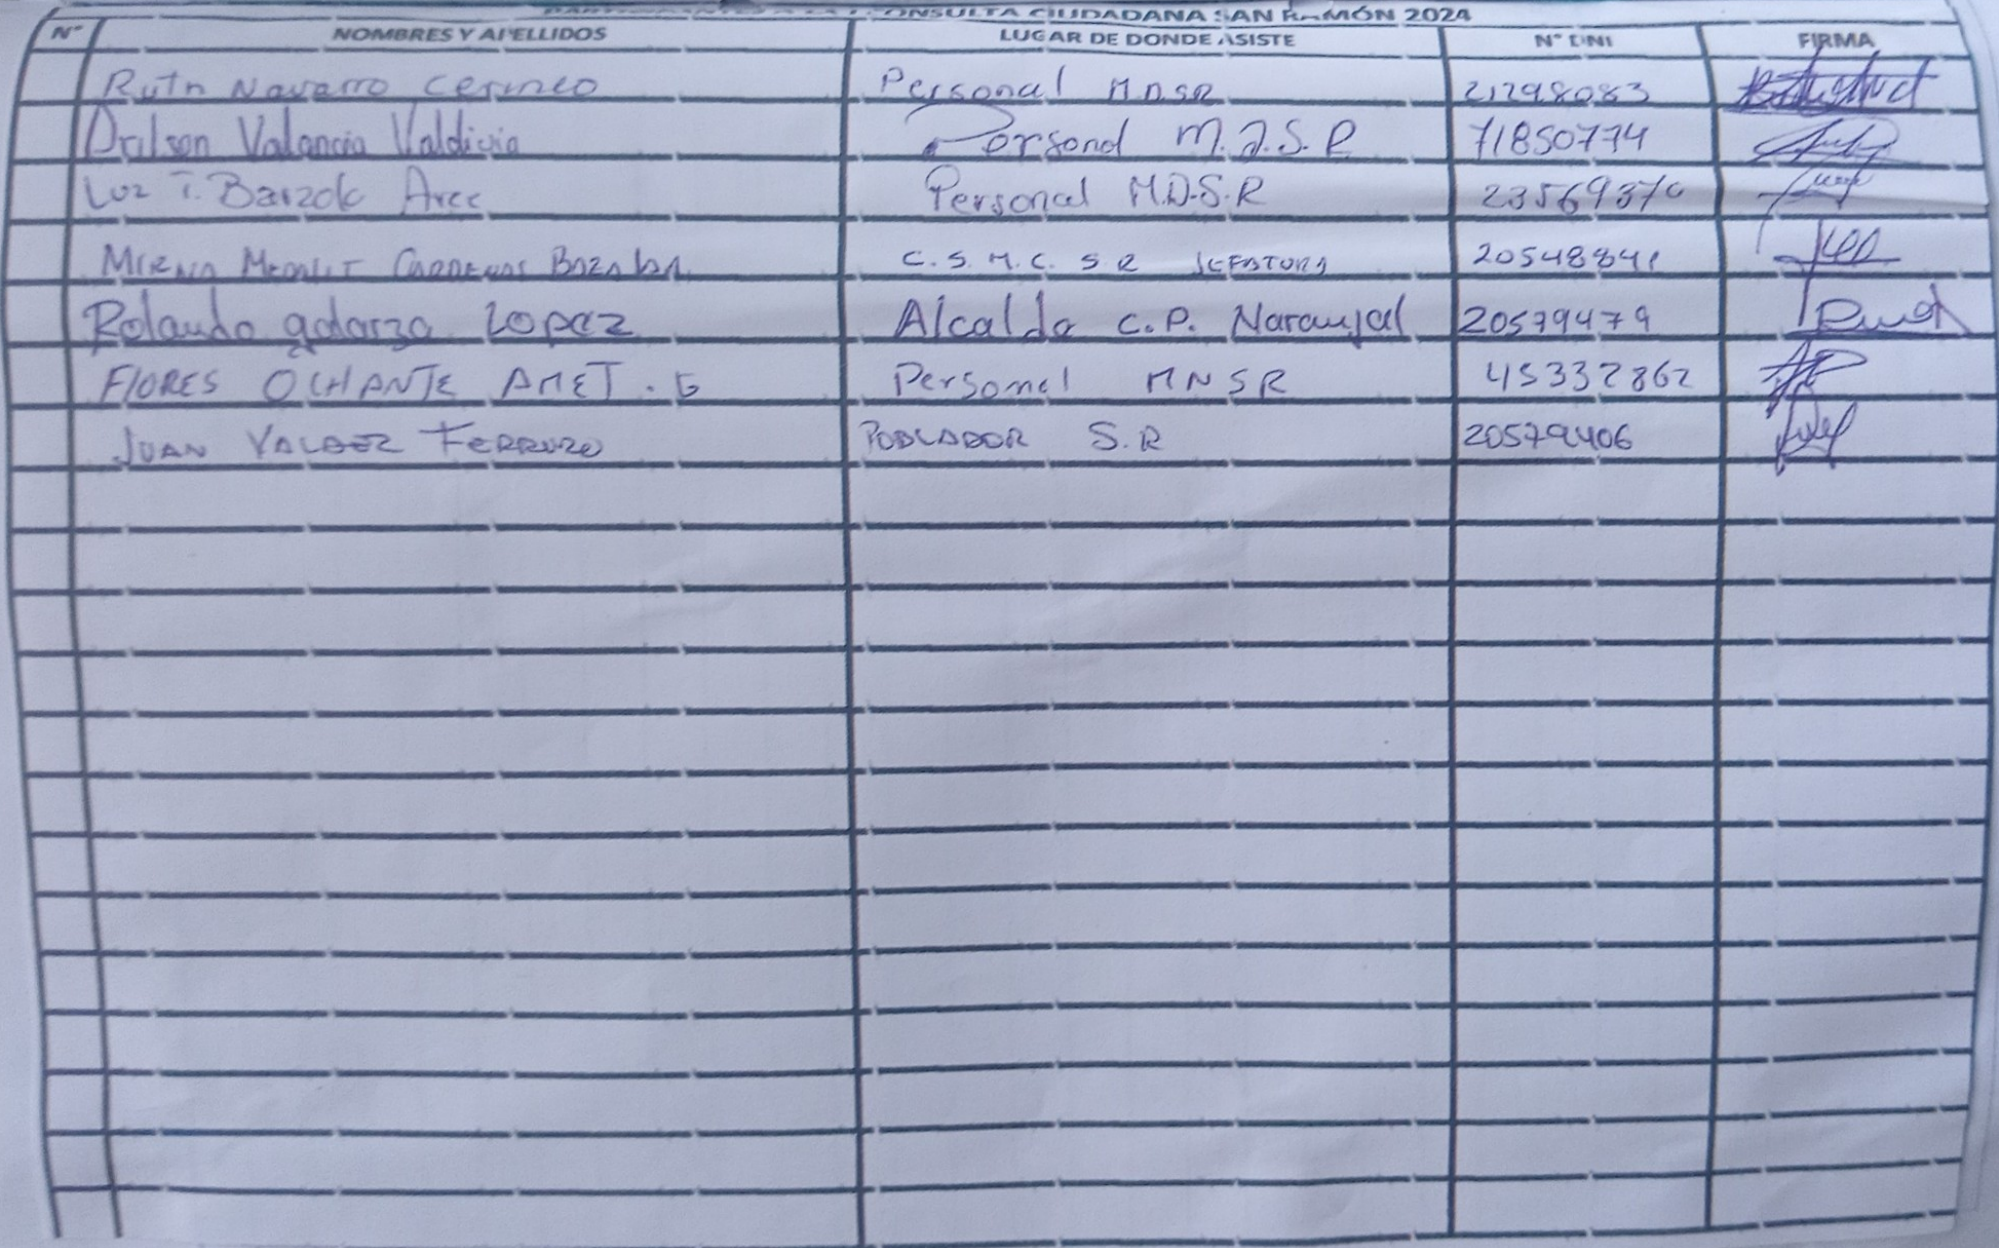 CONSULTA CIUDADANA SAN RAMÓN 2024
N° NOMBRES Y APELLIDOS LUGAR DE DONDE ASISTE N° DNI FIRMA
Ruth Navarro Personal M.D.S.R 21298083
Valencia Valdivia Personal M.D.S.R 71850774
Luz T. Barzola Arce Personal M.D.S.R
C.S.M.C. S R JEFATURA 20548841
Rolando galarza Lopez Alcalde C.P. Naranjal 20579479
FlORES OCHANTE AMET. G Personal MNSR 45332862
JUAN VALDEZ POBLADOR S.R 20579406